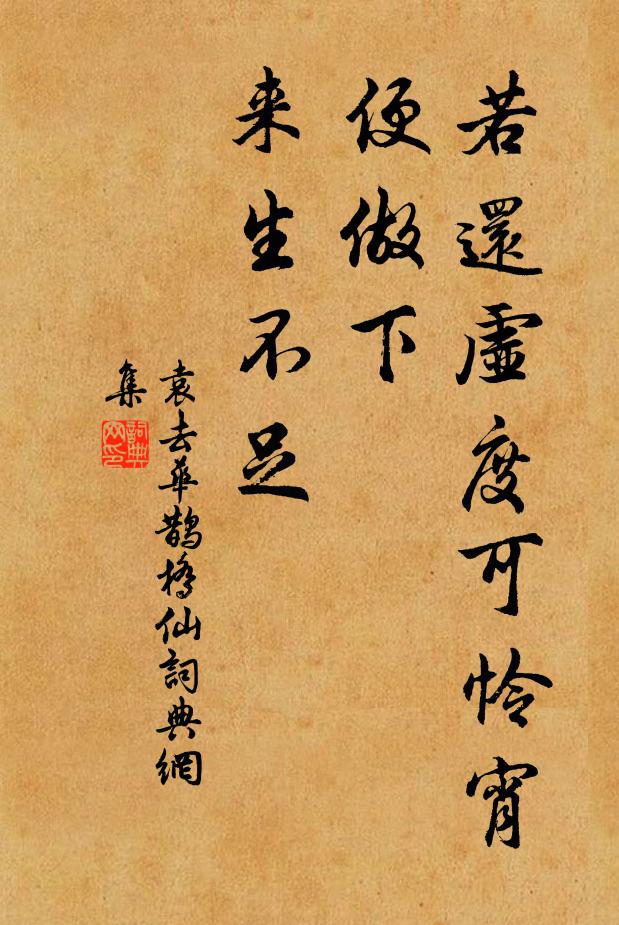 若還虛度可怜宵
便做下
来生不足
袁去華鵲橋仙詞典網
集
詞典
网印